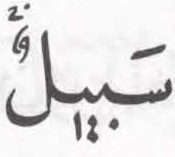 ٢٠
سَبِيلٌ
١٤٠